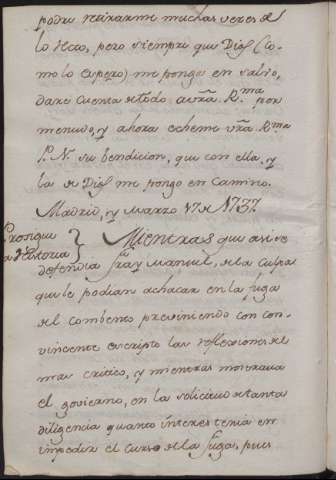 podre retirarme muchas veces de
lo recto, pero siempre que Dios (co-
mo lo espero) me ponga en salvo,
dare cuenta de todo a vrã. Rma por
menudo, y ahora echeme vrã. Rma
P. N. su bendicion, que con ella, y
la de Dios me pongo en camino.
Madrid, y Marzo 17 de 1737.
Prosigue
la Historia } Mientras que asi se
defendia fray Manuel, de la culpa
que le podian achacar en la fuga
del combento previniendo con con-
vincente escripto las reflexiones del
mas critico, y mientras mostrava
el govierno, en la solicitud de tanta
diligencia quanto interes tenia en
impedir el curso de la fuga, pues